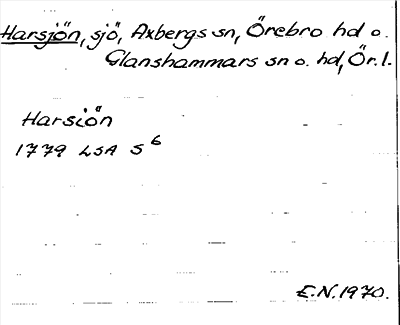 Harsjön, sjö, Axbergs sn, Örebro hd o.
Glanshammars sn o. hd, Ör. l.
Harsiön
1779 LSA S⁶
E.N. 1970.